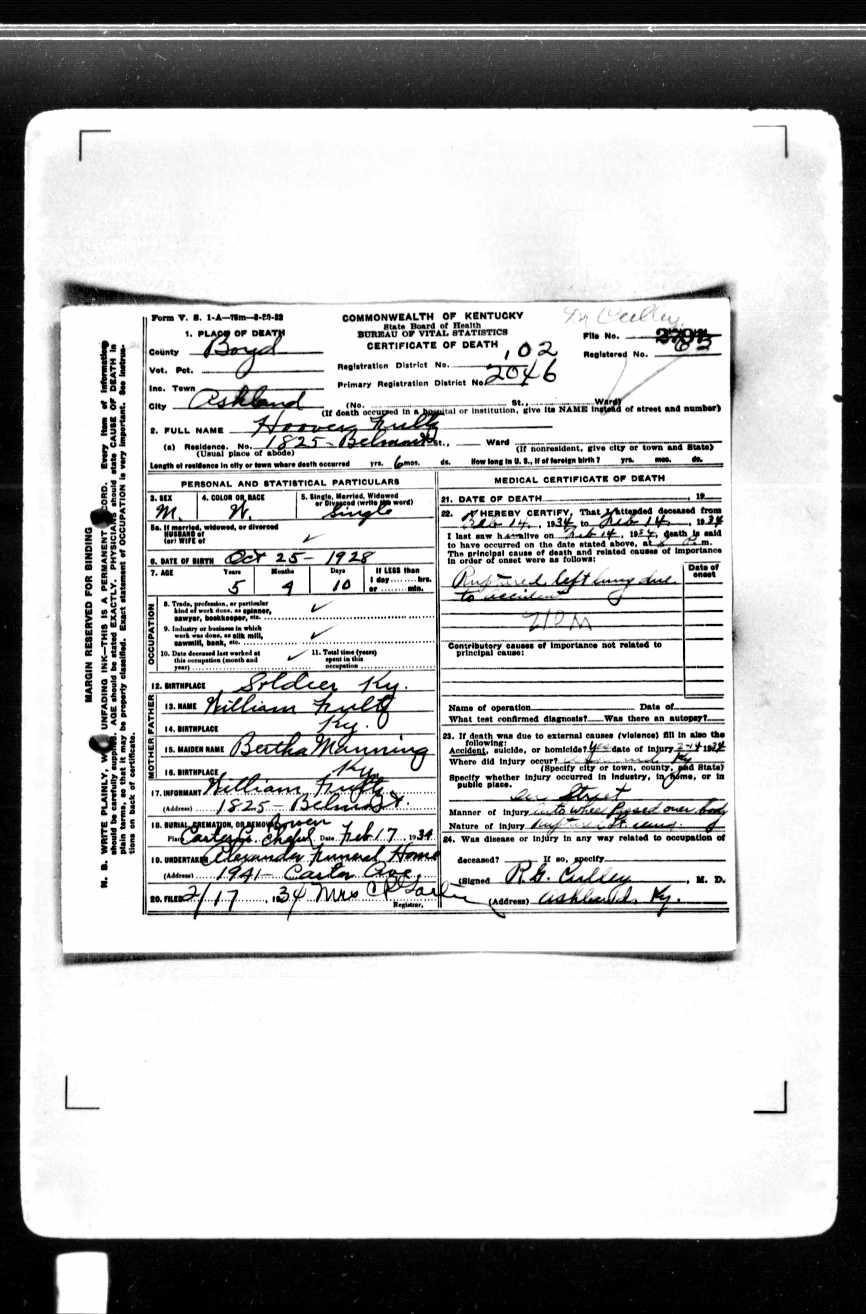 Form V. S. 1-A—75m—8-29-32
COMMONWEALTH OF KENTUCKY
State Board of Health
BUREAU OF VITAL STATISTICS
CERTIFICATE OF DEATH
Dr Culley
File No.
Registered No. 63
1. PLACE OF DEATH
County Boyd
Vot. Pct.
Inc. Town
City Ashland
Registration District No. 102
Primary Registration District No. 2046
(No. St., Ward)
(If death occurred in a hospital or institution, give its NAME instead of street and number)
2. FULL NAME Hoover Fultz
(a) Residence. No. 1825 - Belmont St., Ward
(Usual place of abode) (If nonresident, give city or town and State)
Length of residence in city or town where death occurred yrs. 6 mos. ds. How long in U. S., if of foreign birth? yrs. mos. ds.
PERSONAL AND STATISTICAL PARTICULARS
3. SEX M. 4. COLOR OR RACE W. 5. Single, Married, Widowed or Divorced (write the word) Single
5a. If married, widowed, or divorced
HUSBAND of
(or) WIFE of
6. DATE OF BIRTH Oct 25 - 1928
7. AGE Years Months Days If LESS than
1 day hrs.
5 4 10 or min.
OCCUPATION
8. Trade, profession, or particular
kind of work done, as spinner,
sawyer, bookkeeper, etc.
9. Industry or business in which
work was done, as silk mill,
sawmill, bank, etc.
10. Date deceased last worked at
this occupation (month and
year)
11. Total time (years)
spent in this
occupation
12. BIRTHPLACE Soldier Ky.
FATHER
13. NAME William Fultz
14. BIRTHPLACE Ky.
MOTHER
15. MAIDEN NAME Bertha Manning
16. BIRTHPLACE Ky
17. INFORMANT William Fultz
(Address) 1825 - Belmont St.
18. BURIAL, CREMATION, OR REMOVAL
Place Carter Co. Bowen Chapel Date Feb 17, 1934
19. UNDERTAKER Alexander Funeral Home
(Address) 1941 - Carter Ave.
20. FILED 2/17, 1934 Mrs C P
Registrar.
MEDICAL CERTIFICATE OF DEATH
21. DATE OF DEATH , 19
22. I HEREBY CERTIFY, That I attended deceased from
Feb 14, 1934 to Feb 14, 1934
I last saw h alive on Feb 14, 1934, death is said
to have occurred on the date stated above, at m.
The principal cause of death and related causes of importance
in order of onset were as follows:
Date of
onset
Ruptured left lung due
to accident
Contributory causes of importance not related to
principal cause:
Name of operation Date of
What test confirmed diagnosis? Was there an autopsy?
23. If death was due to external causes (violence) fill in also the
following:
Accident, suicide, or homicide? Yes date of injury 2-14 1934
Where did injury occur? Ky
(Specify city or town, county, and State)
Specify whether injury occurred in industry, in home, or in
public place.
on Street
Manner of injury auto wheel passed over body
Nature of injury
24. Was disease or injury in any way related to occupation of
deceased? If so, specify
(Signed R. G. Culley, M. D.
(Address) Ashland, Ky.
MARGIN RESERVED FOR BINDING
N. B. WRITE PLAINLY, UNFADING INK—THIS IS A PERMANENT RECORD. Every item of information
should be carefully supplied. AGE should be stated EXACTLY. PHYSICIANS should state CAUSE OF DEATH in
plain terms, so that it may be properly classified. Exact statement of OCCUPATION is very important. See instruc-
tions on back of certificate.